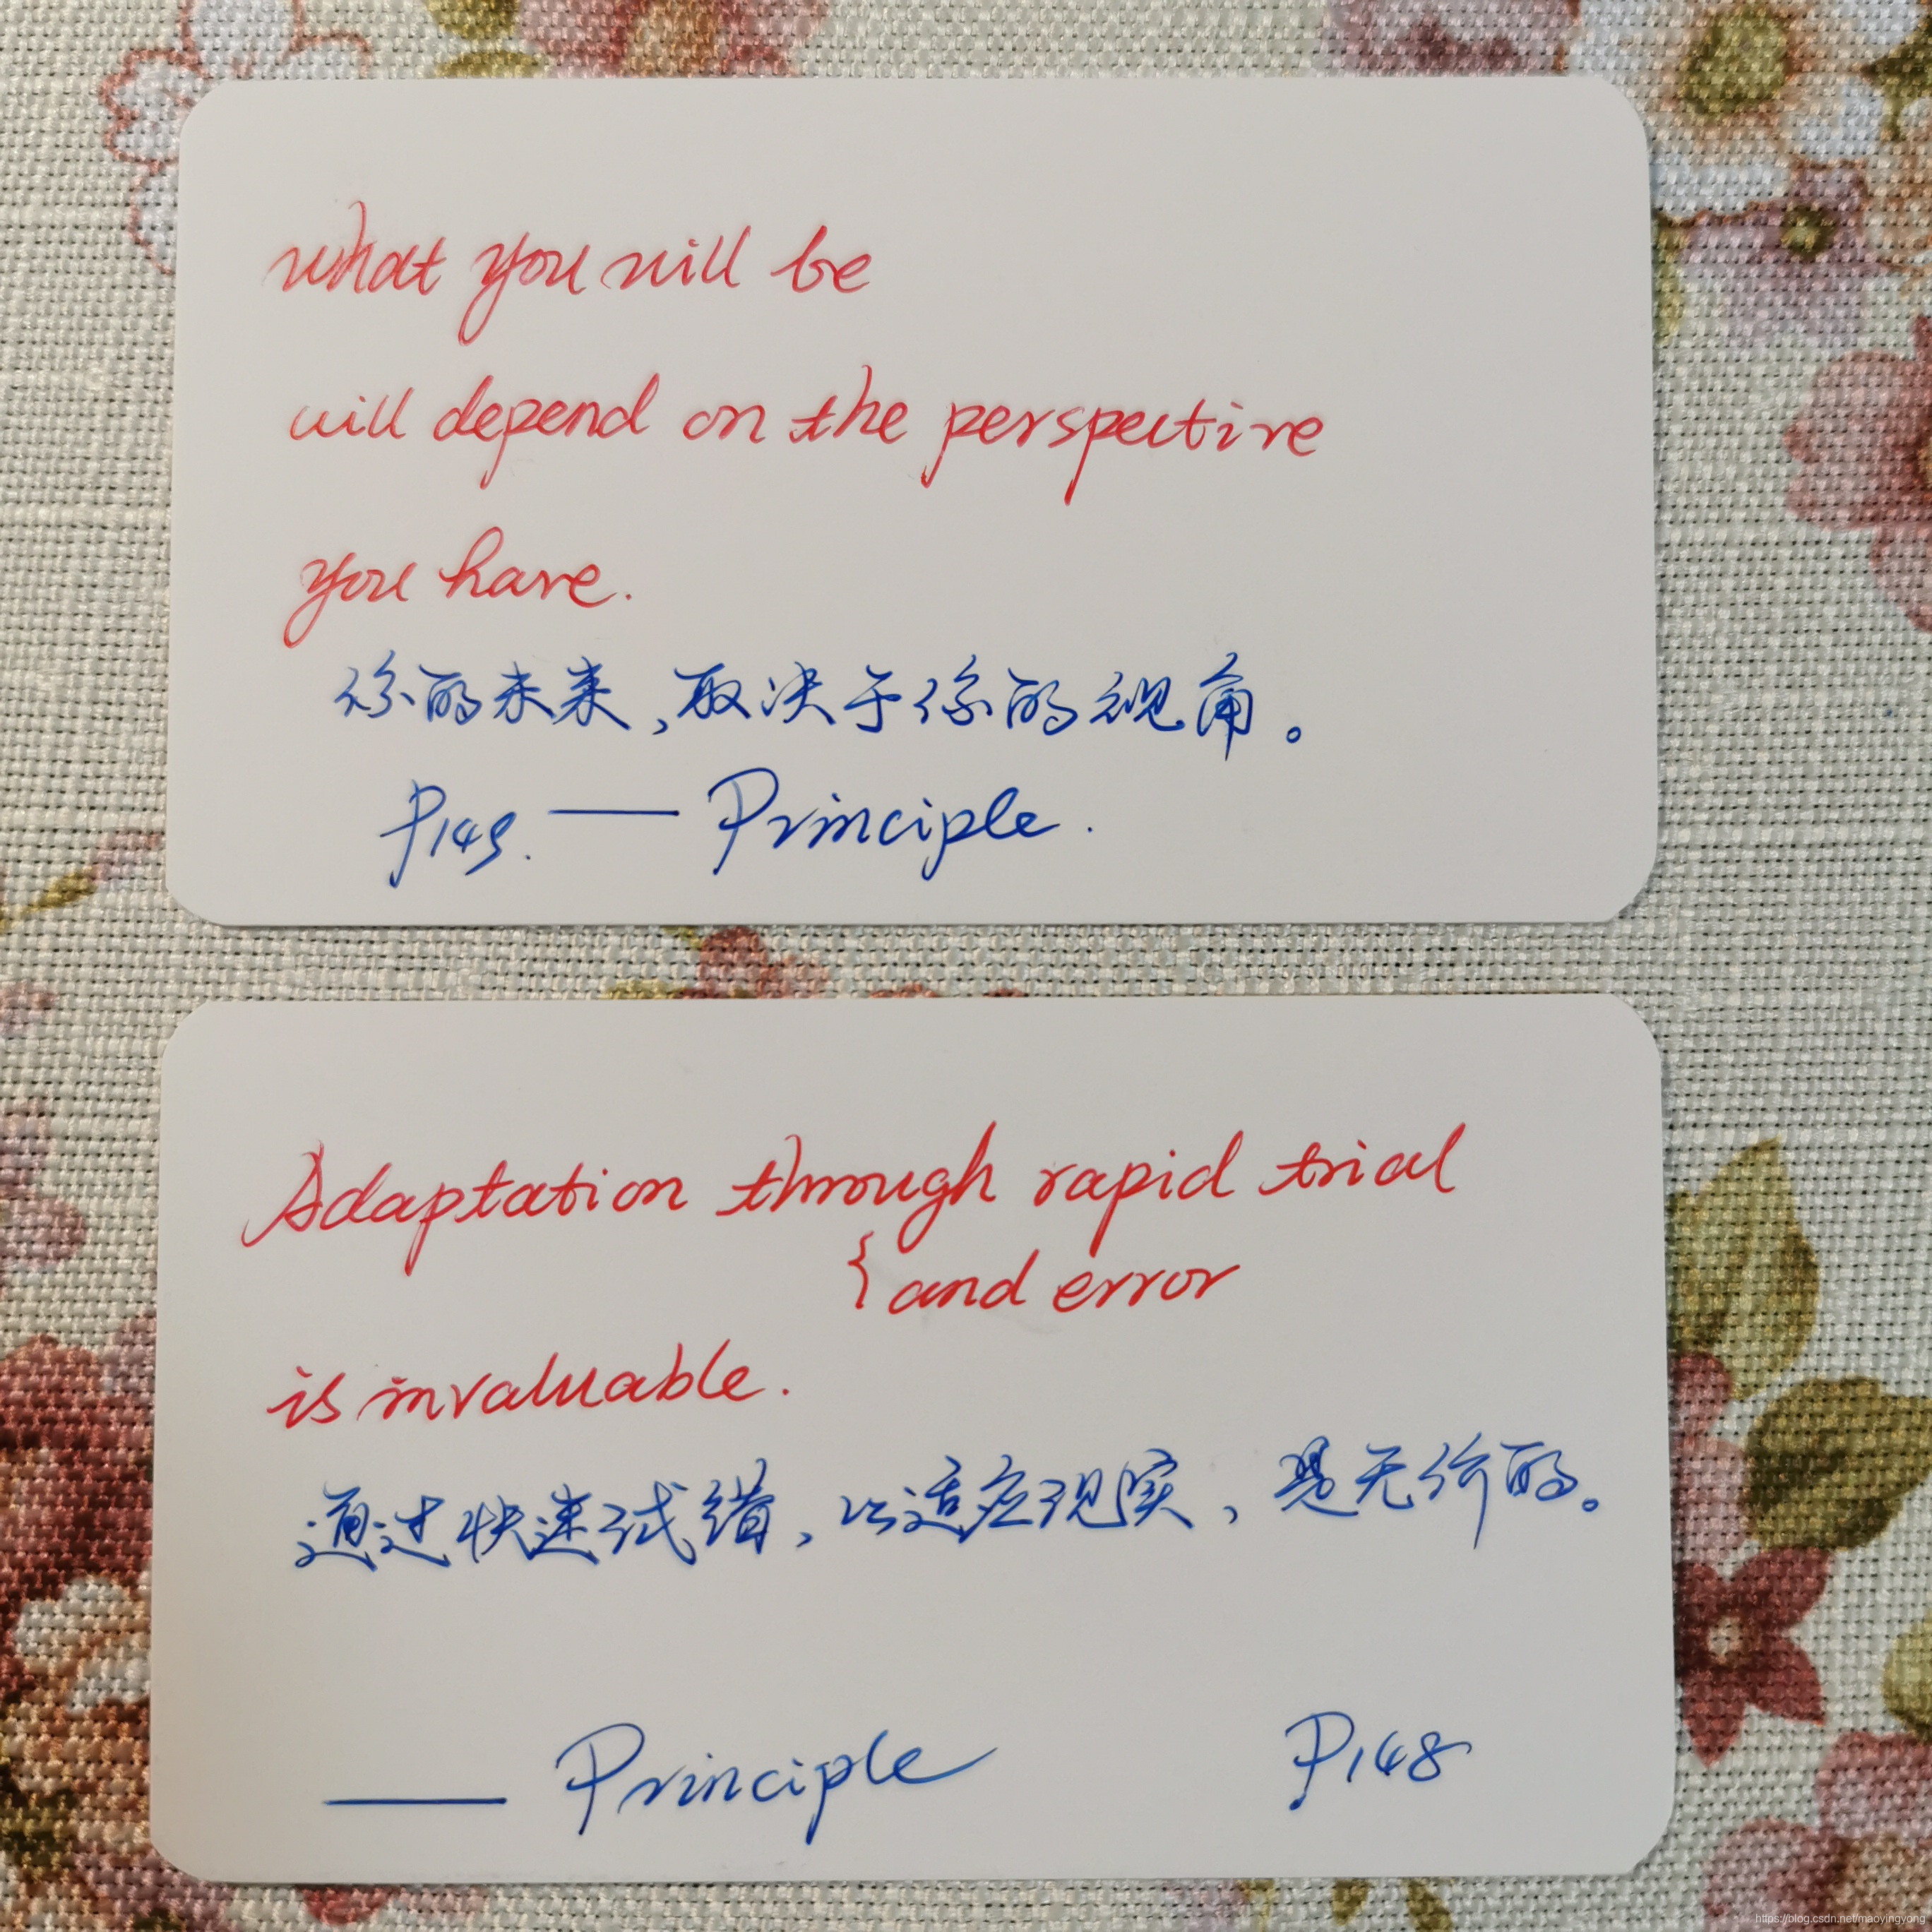 what you will be
will depend on the perspective
you have.
你的未来,取决于你的视角。
P149. —— Principle.
Adaptation through rapid trial
{ and error
is invaluable.
通过快速试错,以适应现实,是无价的。
—— Principle P148
https://blog.csdn.net/maoyingyong